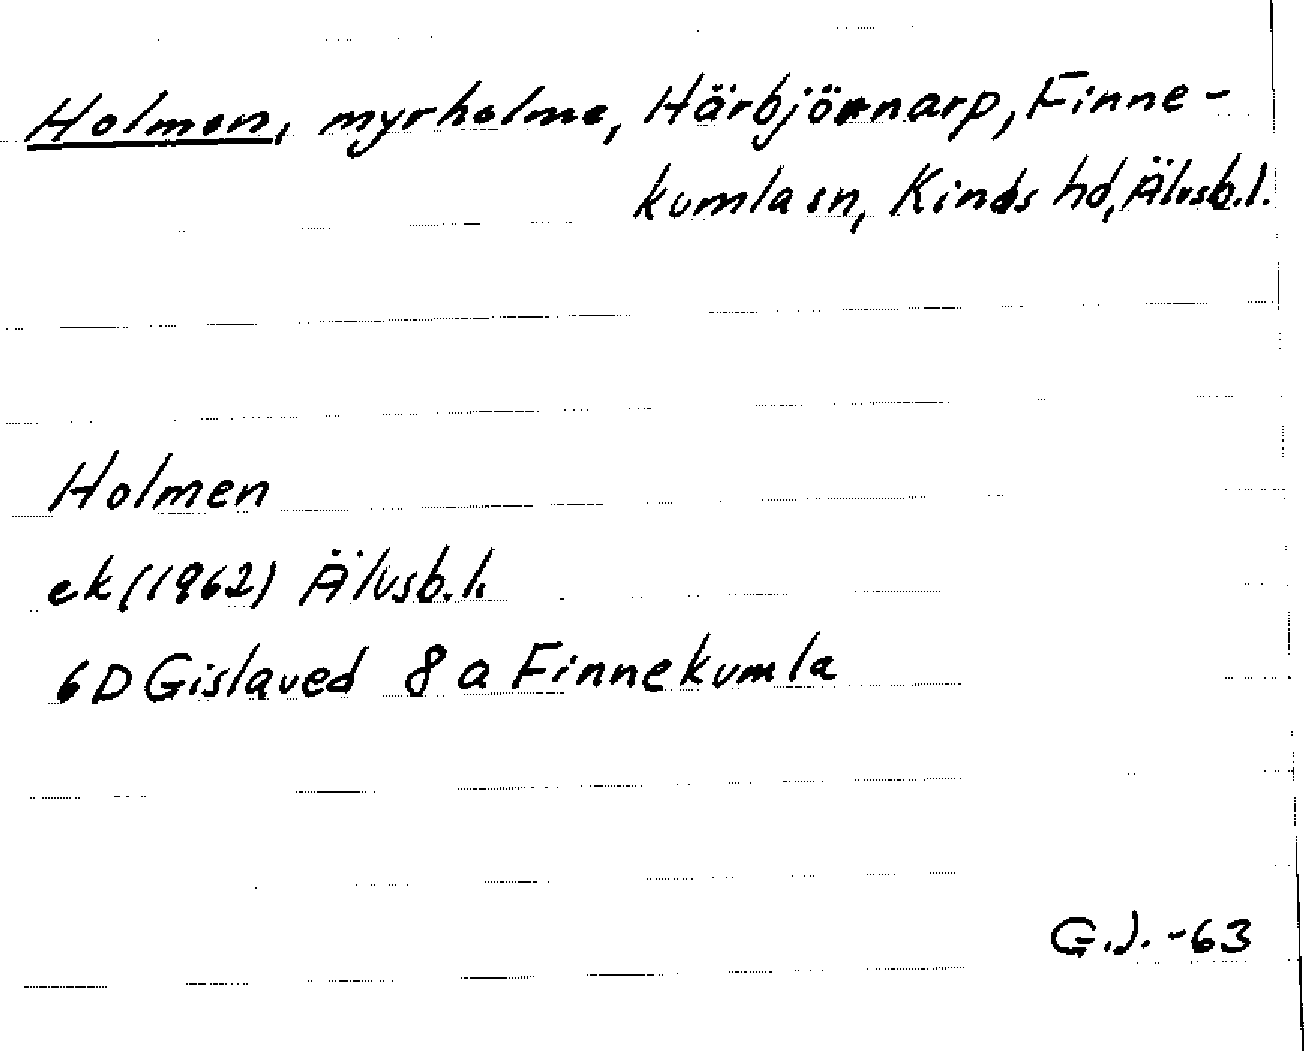 Holmen, myrholme, Härbjörnarp, Finne-
kumla sn, Kinds hd, Älvsb.l.
Holmen
ek (1962) Älvsb.l.
6D Gislaved 8a Finnekumla
G.J. -63